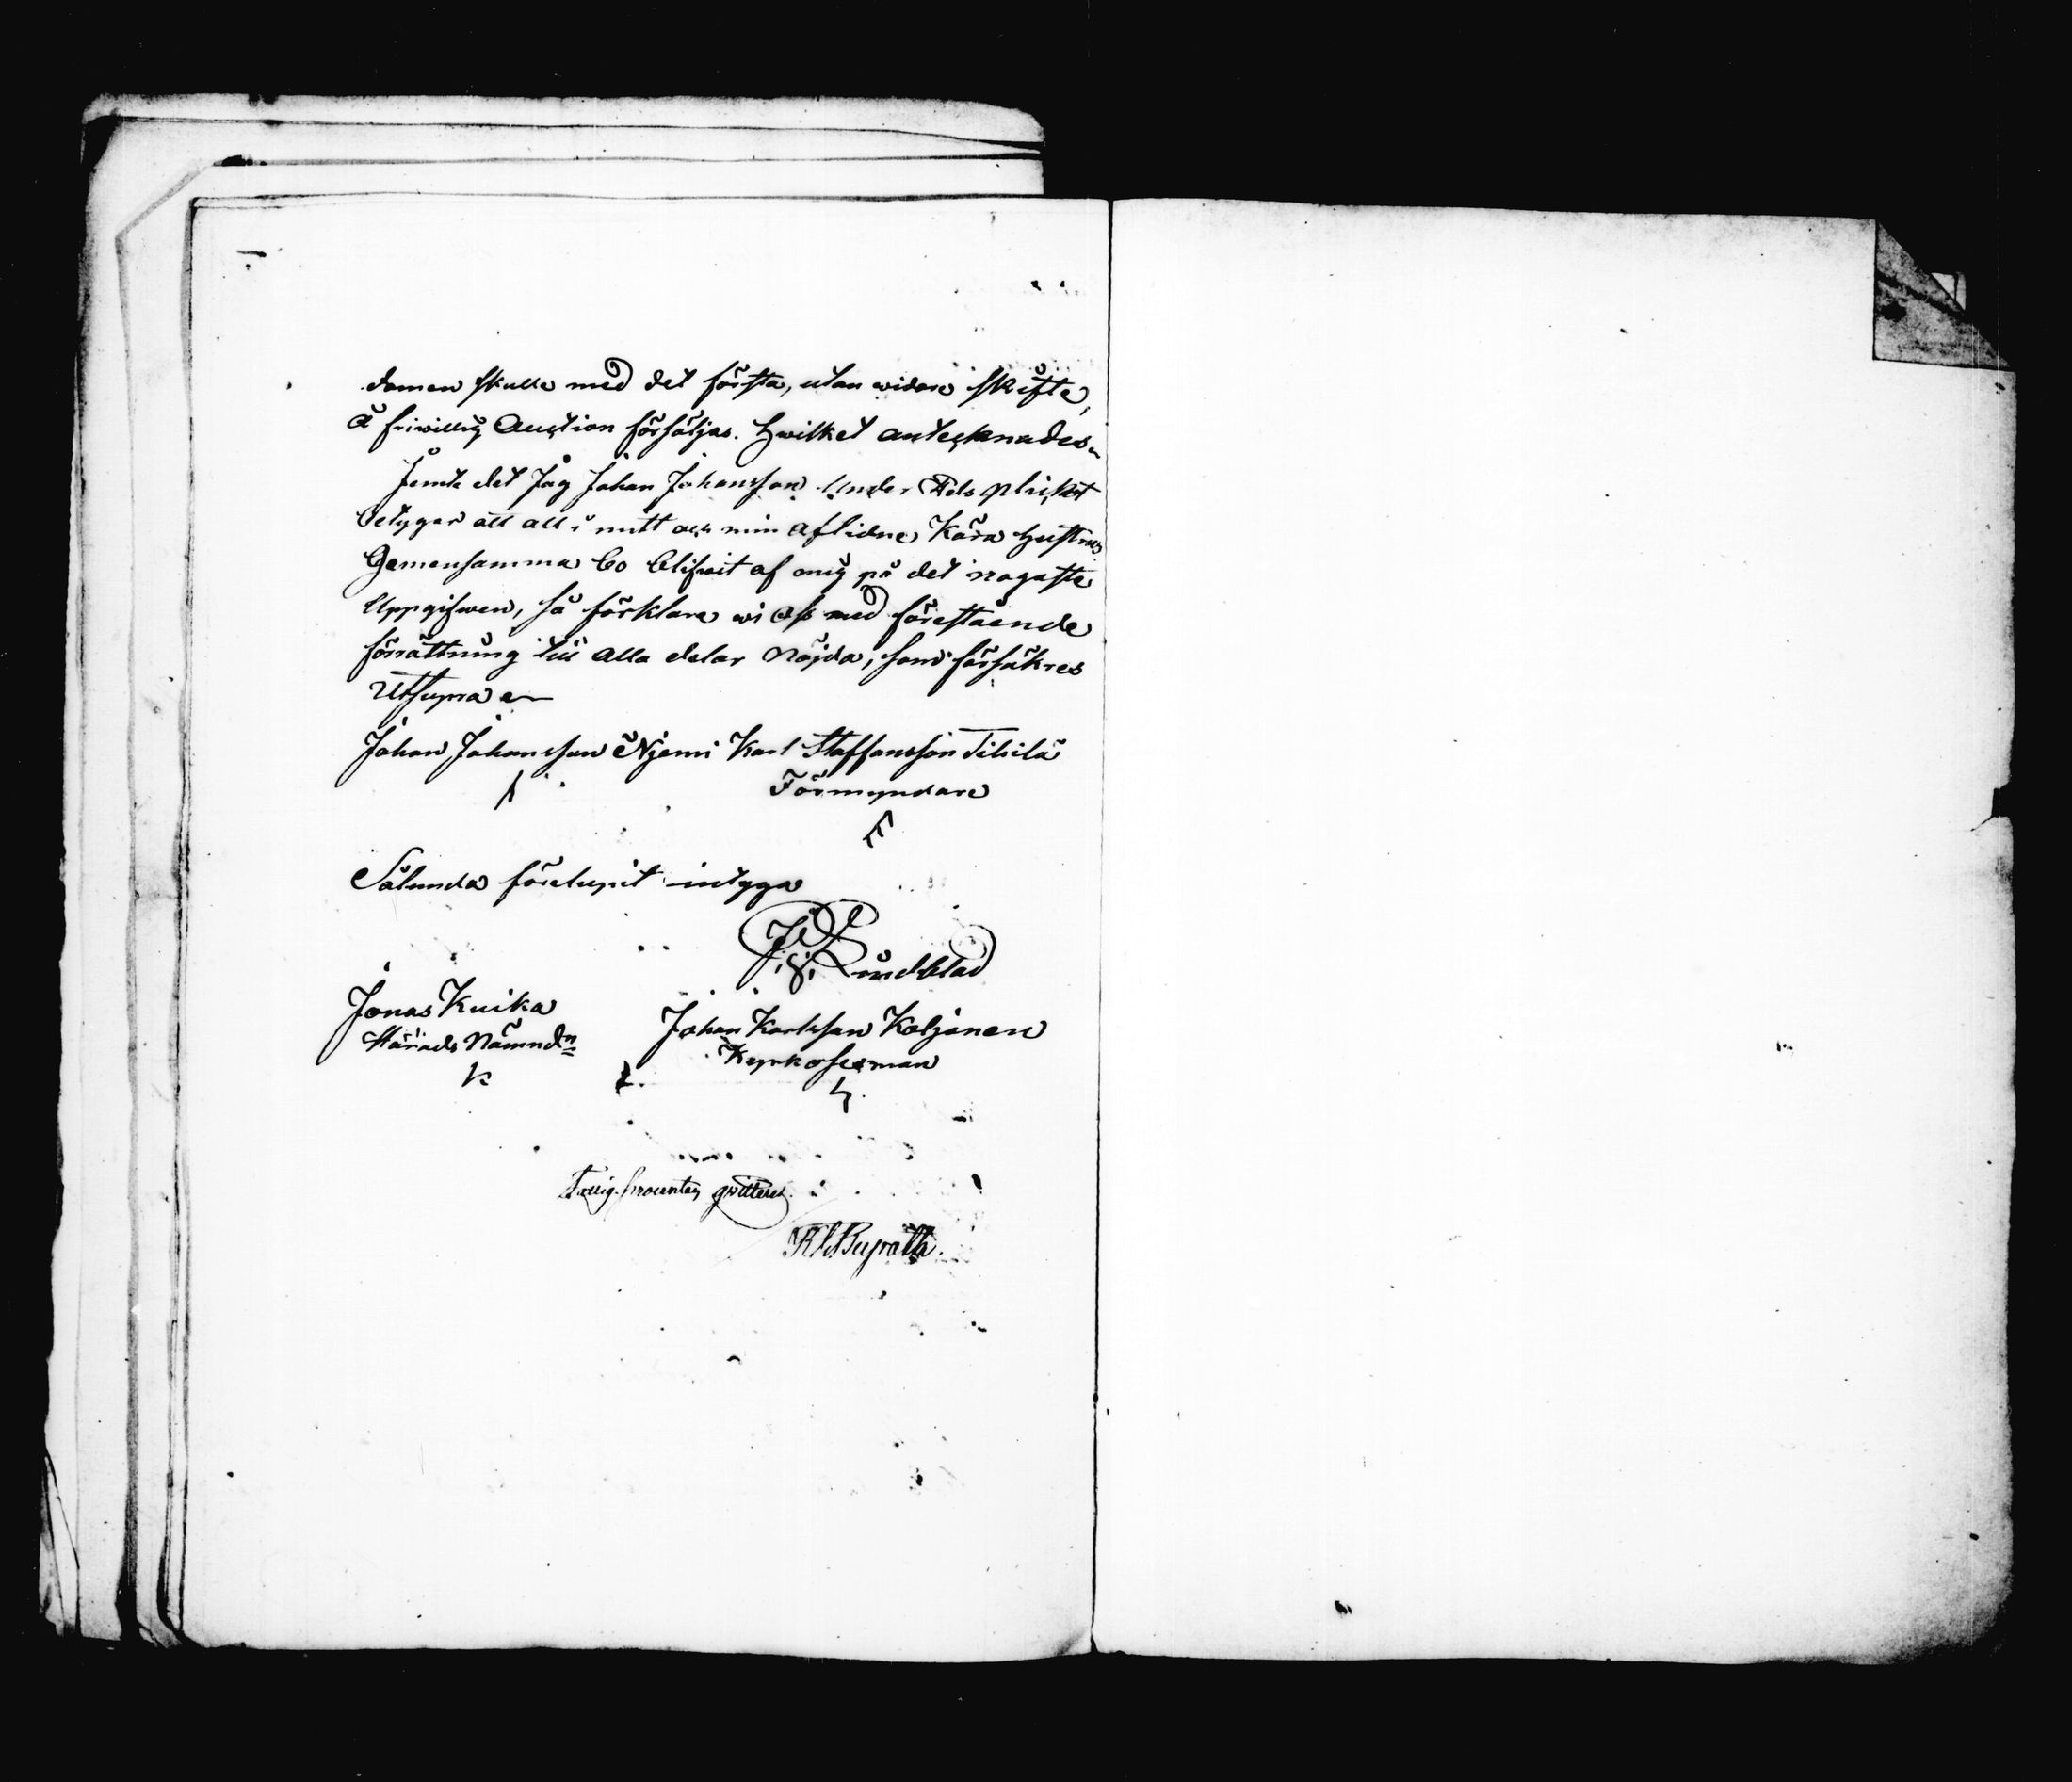 domen skulle med det första, utan widare skifte,
å friwillig Auction försäljas. Hwilket antecknades
Jemte det Jag Johan Johansson Under Edsplickt
betygar att alt i mitt och min aflidne Kära hustrus
Gemensamma bo blifwit af mig på det nogaste
Uppgifwen, så förklara wi oss med förestående
förrättning till alla delar nöjda, som försäkres
Utsupra
Johan Johansson Njemi Karl Staffansson Tihilä
Förmyndare
Sålunda förelupit intyga
Lundblad
Jonas Kuika
Härads Nämndn
Johan Karlsson Koljonen
Kyrkosexman
Fattig procenten qvitteras.